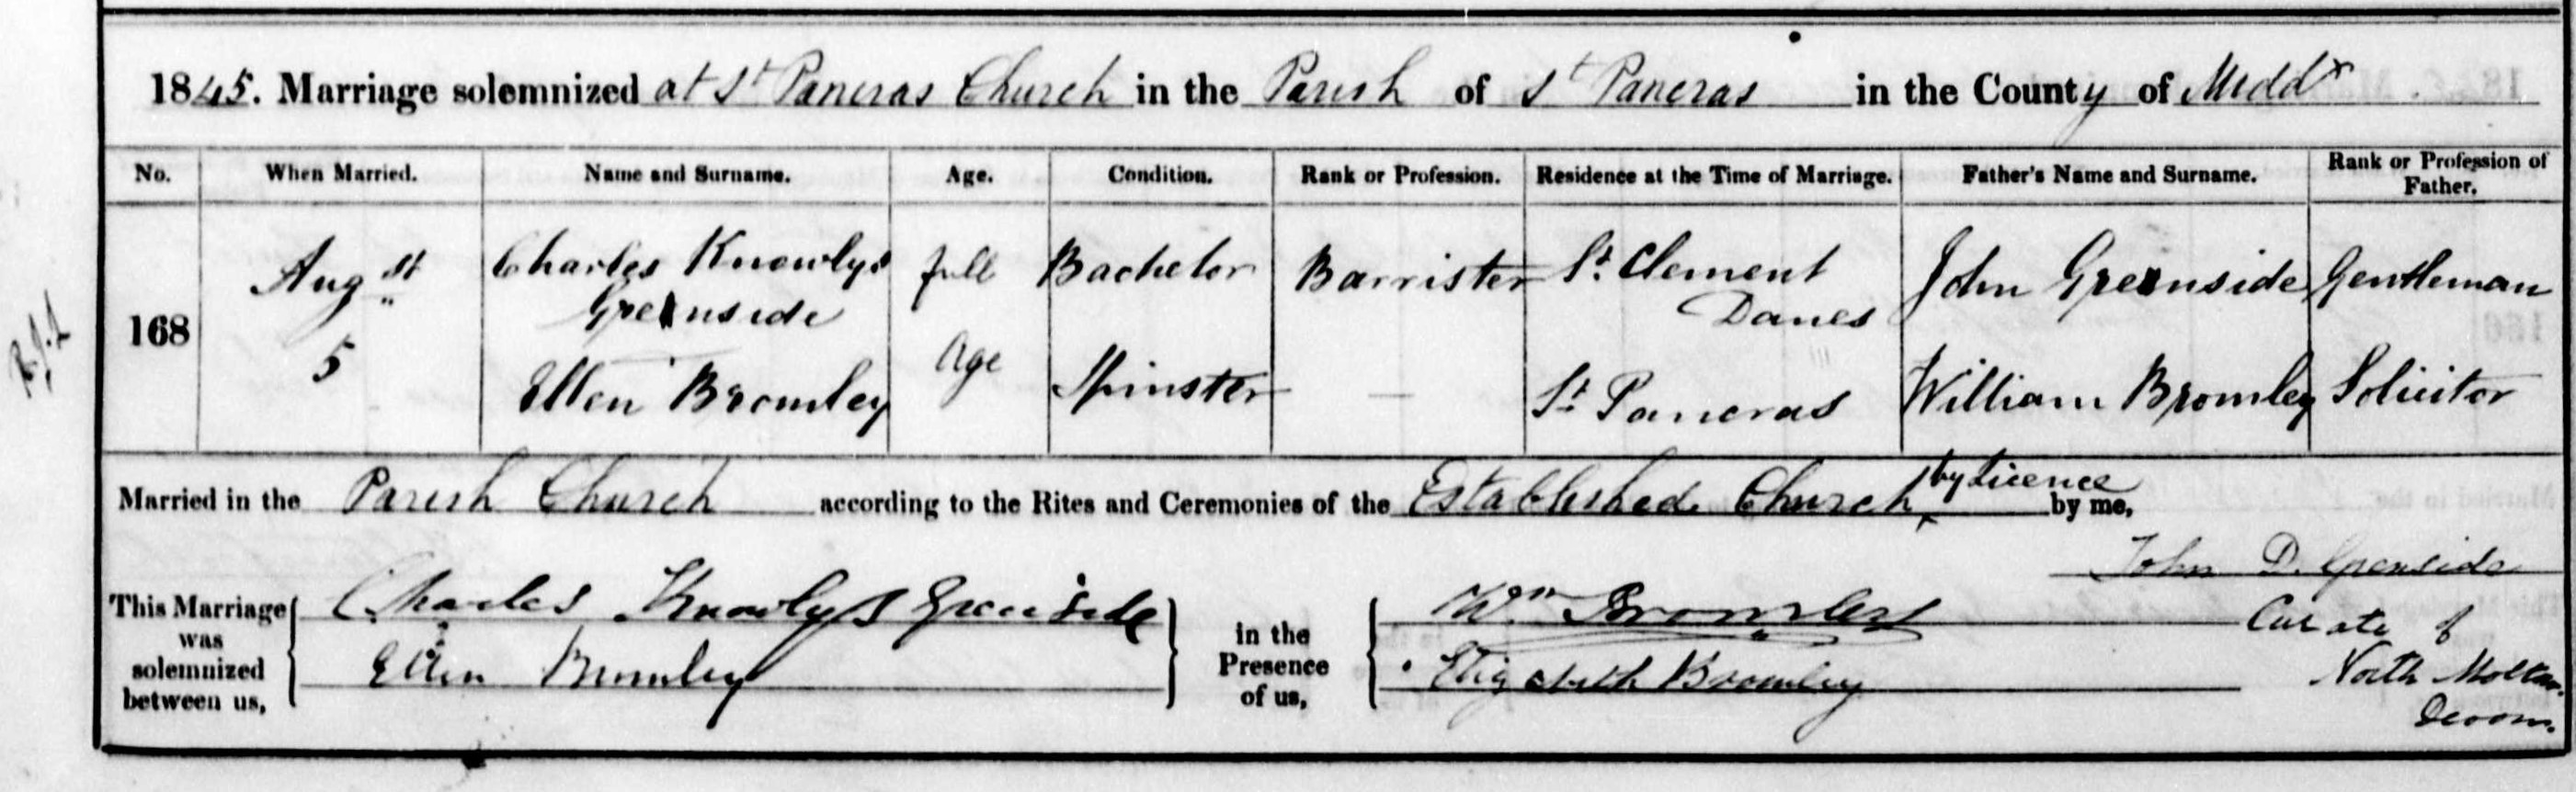 1845. Marriage solemnized at St Pancras Church in the Parish of St Pancras in the County of Middx
No. When Married. Name and Surname. Age. Condition. Rank or Profession. Residence at the Time of Marriage. Father's Name and Surname. Rank or Profession of Father.
168 Augst 5
Charles Knowlys Greenside full Bachelor Barrister St. Clement Danes John Greenside Gentleman
Ellen Bromley Age Spinster — St. Pancras William Bromley Solicitor
Married in the Parish Church according to the Rites and Ceremonies of the Established Church by Licence by me,
John D. Greenside
Curate of
North Molton
Devon.
This Marriage was solemnized between us,
Charles Knowlys Greenside
Ellen Bromley
in the Presence of us,
Wm Bromley
Elizabeth Bromley